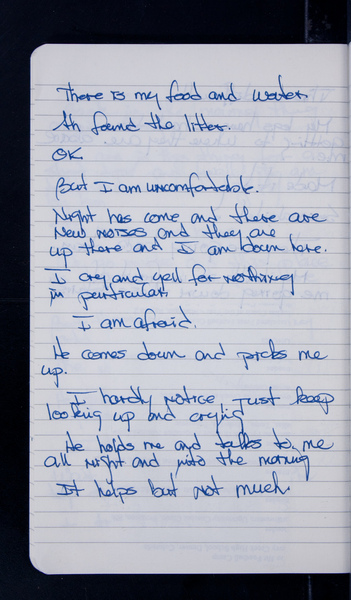 There is my food and water.
Ah found the litter.
OK
But I am uncomfortable.
Night has come and there are
New noises and they are
up there and I am down here.
I cry and yell for nothing
in particular.
I am afraid.
He comes down and picks me
up.
I hardly notice just keep
looking up and crying
He holds me and talks to me
all night and into the morning
It helps but not much.